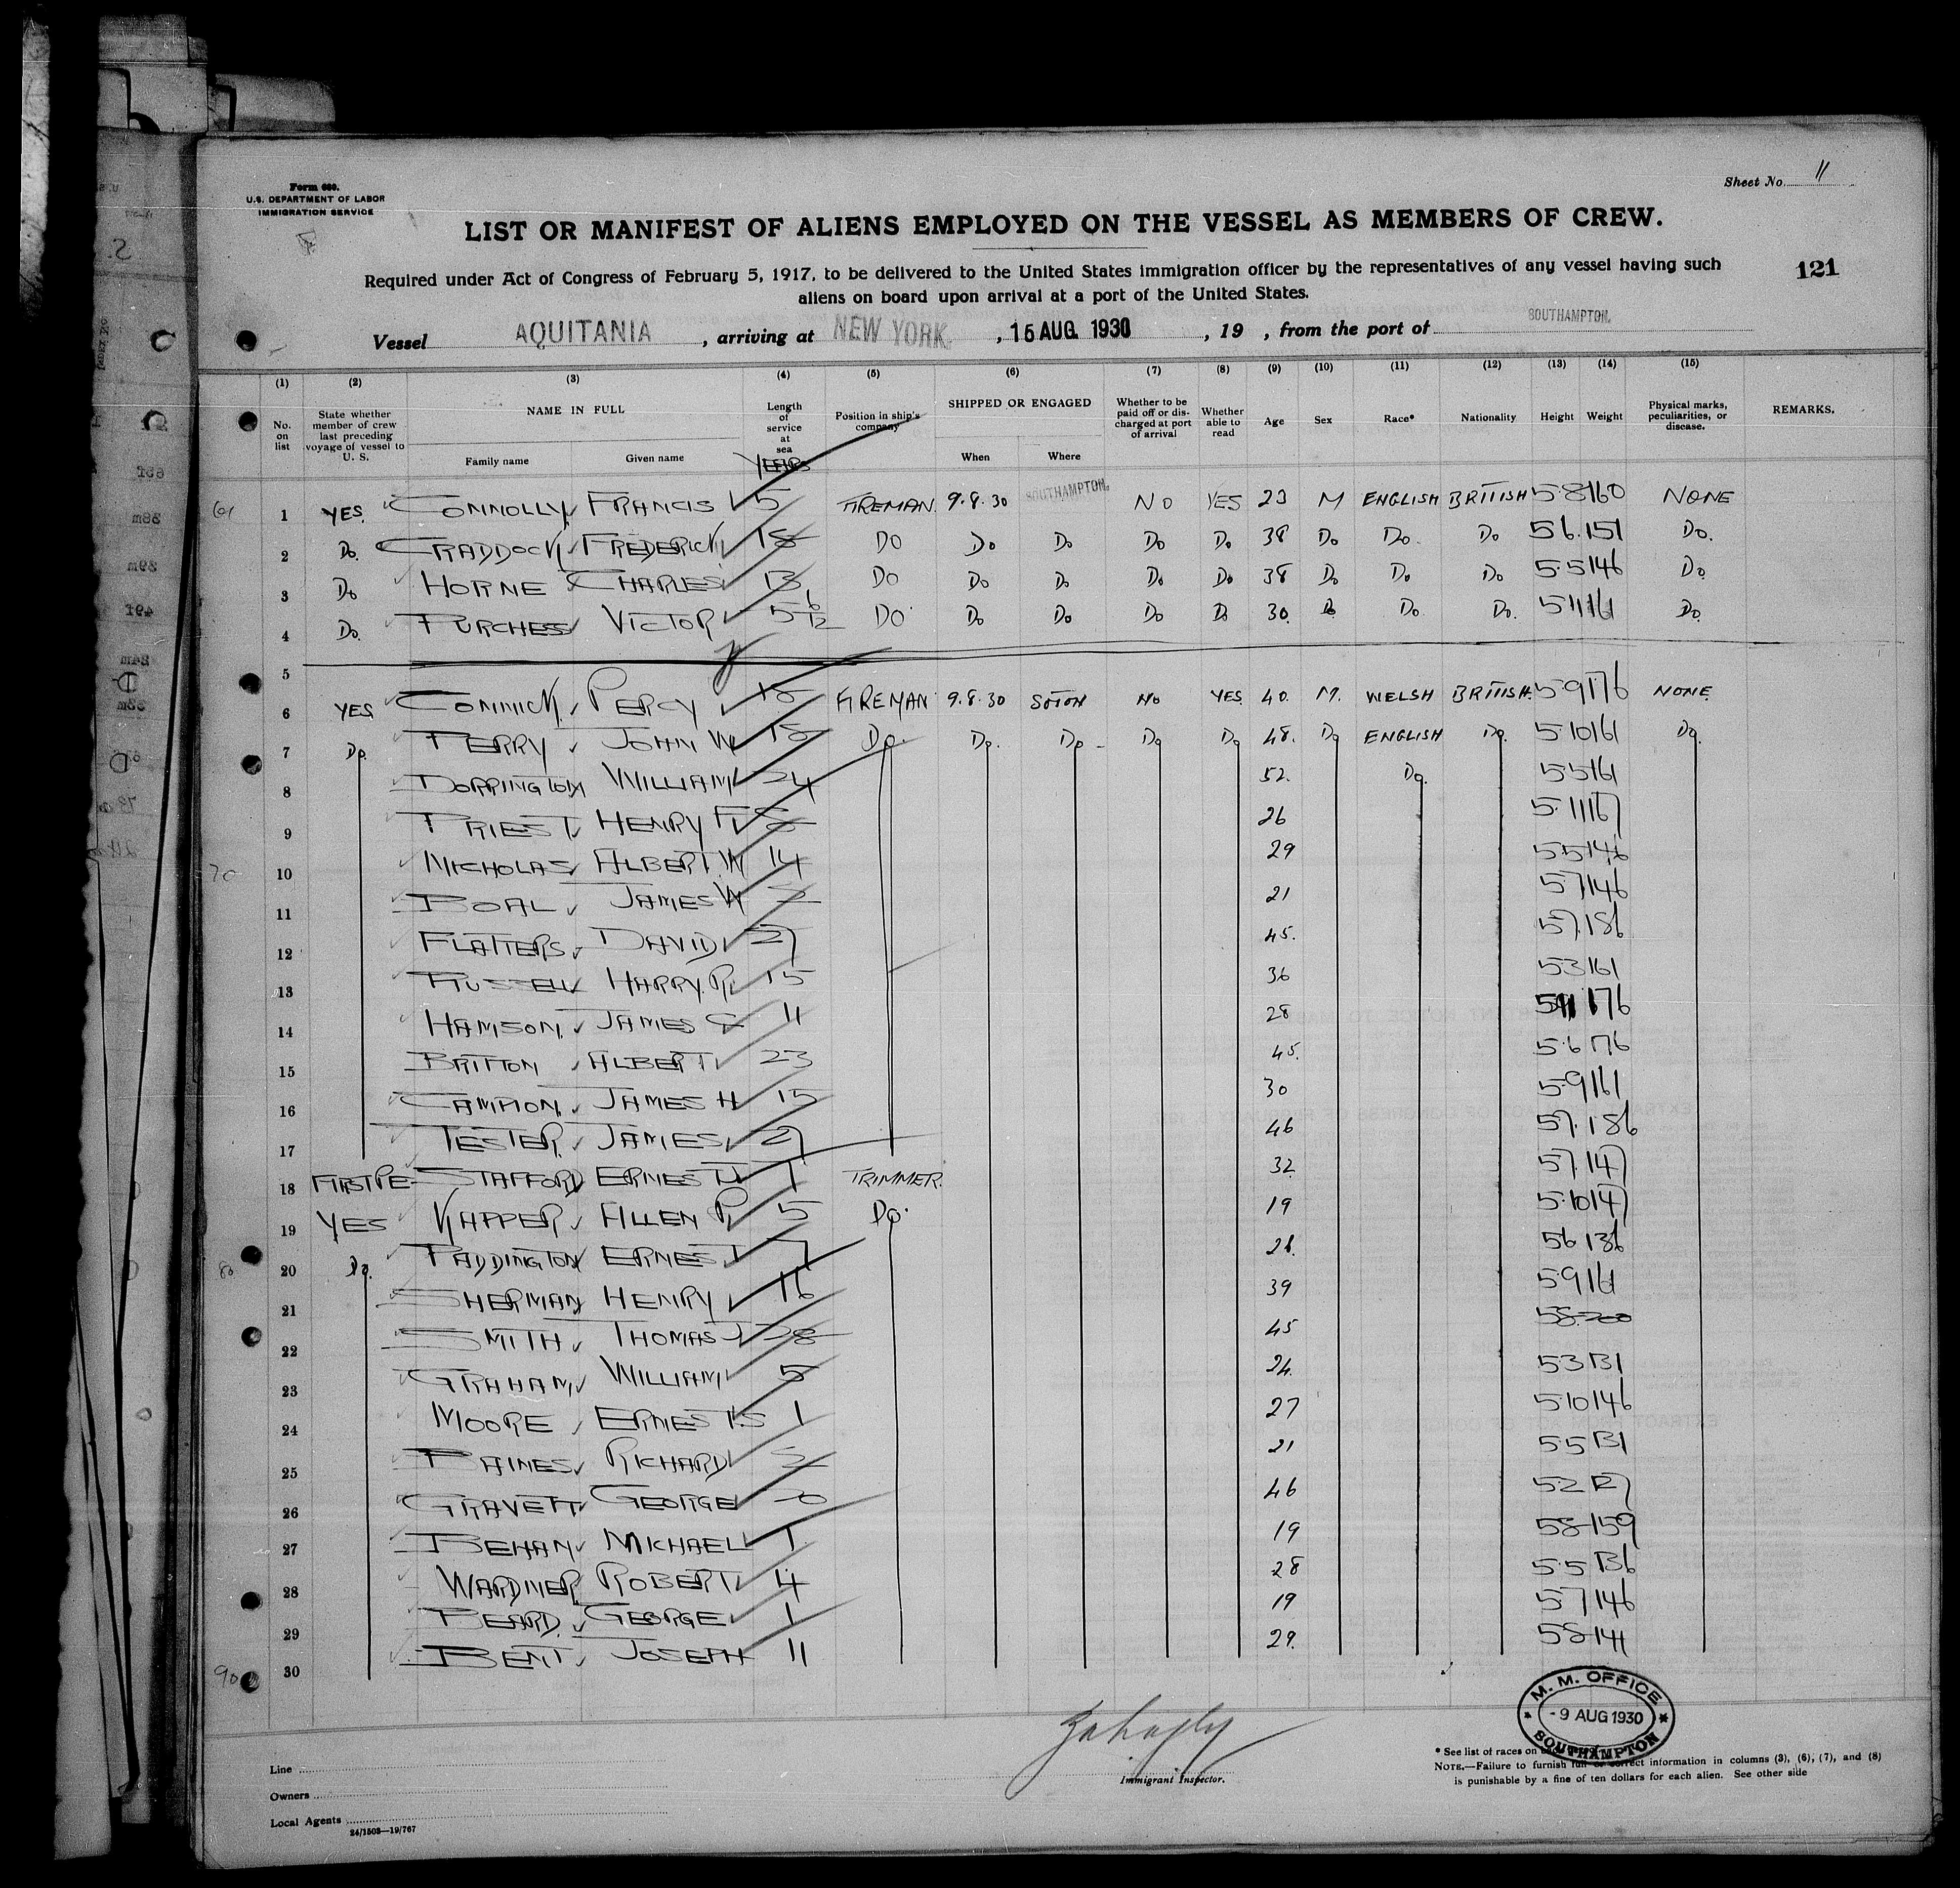 Form 680.
U.S. DEPARTMENT OF LABOR
IMMIGRATION SERVICE
Sheet No. 11
LIST OR MANIFEST OF ALIENS EMPLOYED ON THE VESSEL AS MEMBERS OF CREW.
121
Required under Act of Congress of February 5, 1917, to be delivered to the United States immigration officer by the representatives of any vessel having such
aliens on board upon arrival at a port of the United States.
Vessel AQUITANIA, arriving at NEW YORK, 15 AUG 1930, 19 , from the port of SOUTHAMPTON.
(1) (2) (3) (4) (5) (6) (7) (8) (9) (10) (11) (12) (13) (14) (15)
No. on list State whether member of crew last preceding voyage of vessel to U. S. NAME IN FULL Family name Given name Length of service at sea YEARS Position in ship's company SHIPPED OR ENGAGED When Where Whether to be paid off or discharged at port of arrival Whether able to read Age Sex Race* Nationality Height Weight Physical marks, peculiarities, or disease. REMARKS.
61 1 YES. CONNOLLY FRANCIS 5 FIREMAN. 9.8.30 SOUTHAMPTON. NO YES 23 M ENGLISH BRITISH 5.8 160 NONE
2 Do. CRADDOCK FREDERICK 18 DO Do Do Do Do 38 Do Do. Do 56. 151 Do.
3 Do HORNE CHARLES 13 DO Do Do Do Do 38 Do Do Do 5.5 146 Do
4 Do. PURCHES VICTOR 5 6/12 DO Do Do Do Do 30. Do Do. Do. 511 161 Do.
5
6 YES CONNICK PERCY 18 FIREMAN 9.8.30 SOTON NO YES. 40. M. WELSH BRITISH. 5.9 176 NONE
7 Do. PERRY JOHN W 18 Do. Do. Do Do Do 48. Do ENGLISH Do. 5.10 161 Do.
8 DORRINGTON WILLIAM 24 52. Do. 5.5 161
9 PRIEST HENRY F 8 26 5.11 167
10 NICHOLAS ALBERT.W 14 29 5.5 146
11 BOAL JAMES W 21 57 146
12 FLATTERS DAVID 27 45. 57. 186
13 RUSSELL HARRY.R. 15 36 53 161
14 HAMSON. JAMES G 11 28 511 176
15 BRITTON ALBERT 23 45. 5.6 176
16 CAMPION. JAMES H 15 30 5.9 161
17 TESTER. JAMES 27 46 57. 186
18 STAFFORD ERNEST 1 TRIMMER. 32 57. 147
19 YES KAPPER ALLEN R 5 Do. 19 5.10 147
80 20 Do. PADDINGTON ERNEST 7 56 136
21 SHERMAN HENRY 16 39 59 161
22 SMITH THOMAS J 28 45 58 200
23 GRAHAM WILLIAM 5 24. 53 131
24 MOORE ERNEST.S 1 27 5.10 146
25 RICHARD 21 5.5 131
26 GRAVETT GEORGE 20 46 52 127
27 BEHAN MICHAEL 1 19 58 159
28 WARDNER ROBERT 4 28 5.5 136
29 BEARD. GEORGE 1 19 57 146
90 30 BENT JOSEPH 11 29. 58 141
Line
Owners
Local Agents
24/1503—19/767
Immigrant Inspector.
M. M. OFFICE
- 9 AUG 1930
SOUTHAMPTON
* See list of races on
NOTE.—Failure to furnish full or correct information in columns (3), (6), (7), and (8)
is punishable by a fine of ten dollars for each alien. See other side